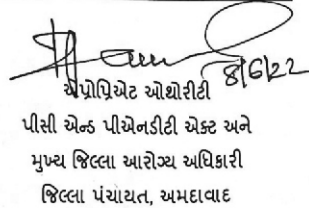 8/6/22
એપ્રોપ્રિએટ ઓથોરીટી
પીસી એન્ડ પીએનડીટી એક્ટ અને
મુખ્ય જિલ્લા આરોગ્ય અધિકારી
જિલ્લા પંચાયત, અમદાવાદ